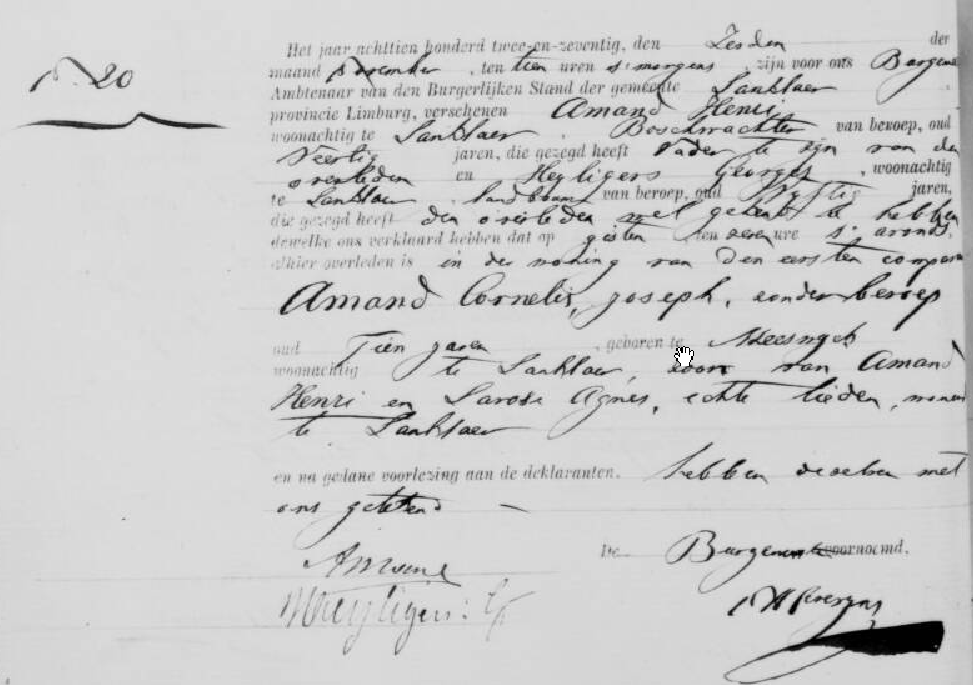 N 20
Het jaar achttien honderd twee-en-zeventig, den Zesden der
maand November, ten tien uren s'morgens, zijn voor ons Burgem
Ambtenaar van den Burgerlijken Stand der gemeente Lanklaer
provincie Limburg, verschenen Amand Henri
woonachtig te Lanklaer, Boschwachter van beroep, oud
Veertig jaren, die gezegd heeft Vader te zijn van den
overleden en Heyligers Georges, woonachtig
te Lanklaer, landbouw van beroep, oud jaren,
die gezegd heeft den overleden wel gekent te hebben
dewelke ons verklaard hebben dat op gisten ten zeven ure s'avonds,
alhier overleden is in de woning van den eersten compar
Amand Cornelis, joseph, zonder beroep
oud Tien jaren, geboren te
woonachtig te Lanklaer, zoon van Amand
Henri en Agnes, echte lieden, wonen
te Lanklaer
en na gedane voorlezing aan de deklaranten. hebben dezelven met
ons getekend
De Burgem voornoemd.
Amand
Heyligers